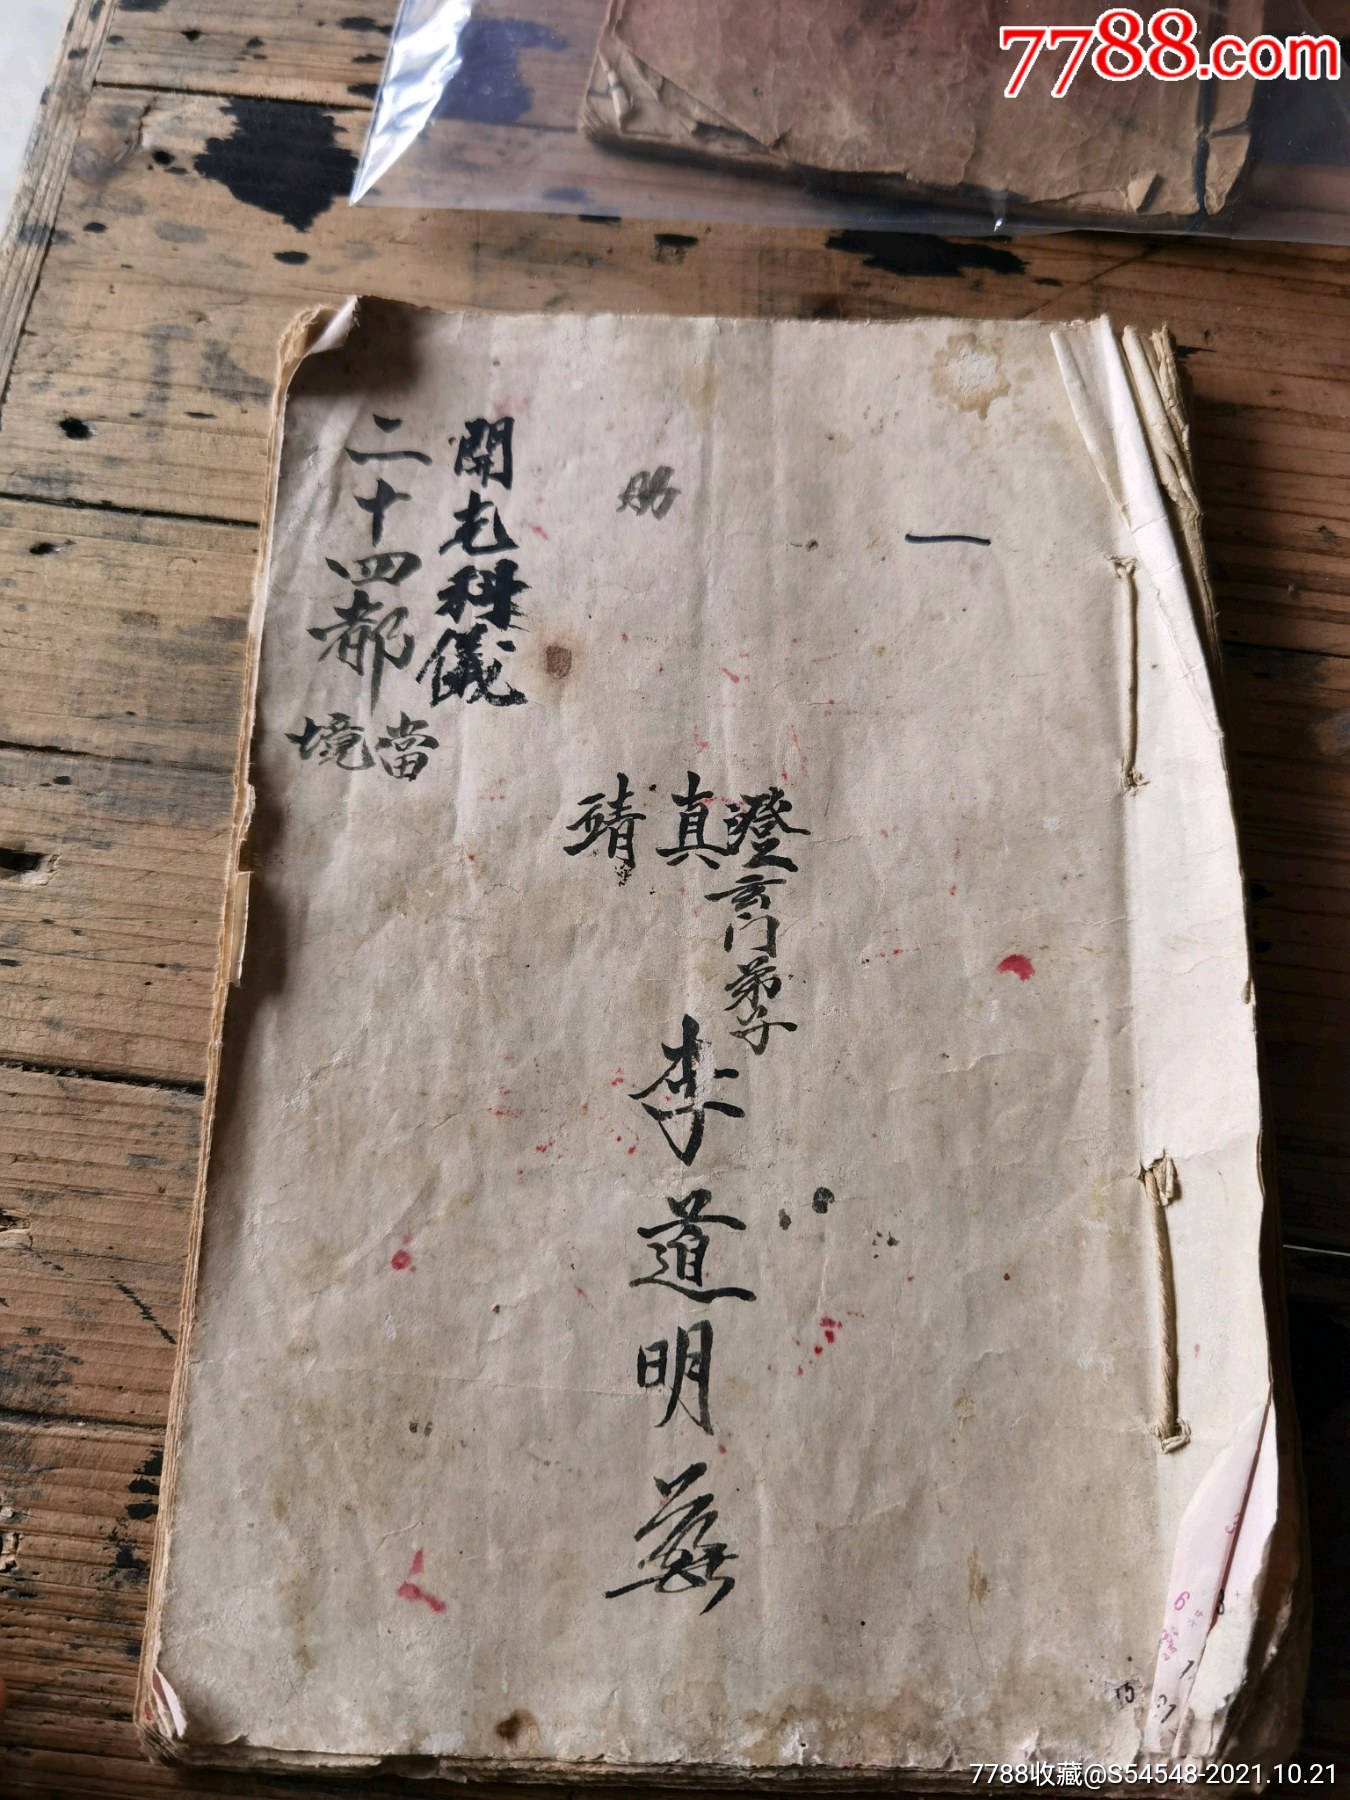 7788.com
一
澄玄门弟子
真靖
李道明
開光科儀
二十四都
當境
7788收藏@S54548-2021.10.21